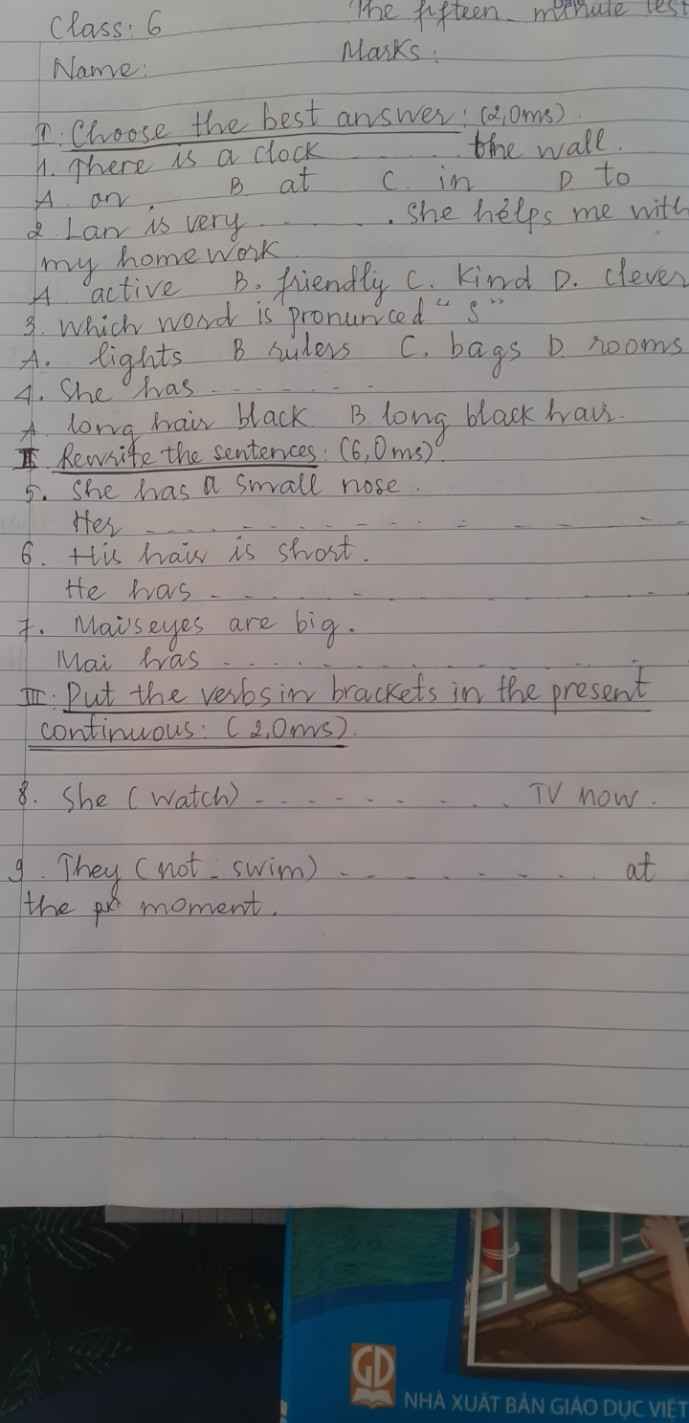 Class: 6 The fifteen minute test
Name: Marks:
I. Choose the best answer: (2,0ms).
1. There is a clock ........ the wall.
A. on. B at C. in D to
2 Lan is very ........ . She helps me with
my homework
A active B. friendly C. kind D. clever
3. which word is pronunced "s"
A. lights B rulers C. bags D. rooms
4. She has .......
A long hair black B long black hair.
II Rewrite the sentences: (6,0ms)
5. She has a small nose.
Her ..............
6. His hair is short.
He has ..............
7. Mai's eyes are big.
Mai has ..............
III: Put the verbs in brackets in the present
continuous: (2,0ms).
8. She (watch) .......... TV now.
9. They (not - swim) ......... at
the moment.
GD
NHÀ XUẤT BẢN GIÁO DỤC VIỆT